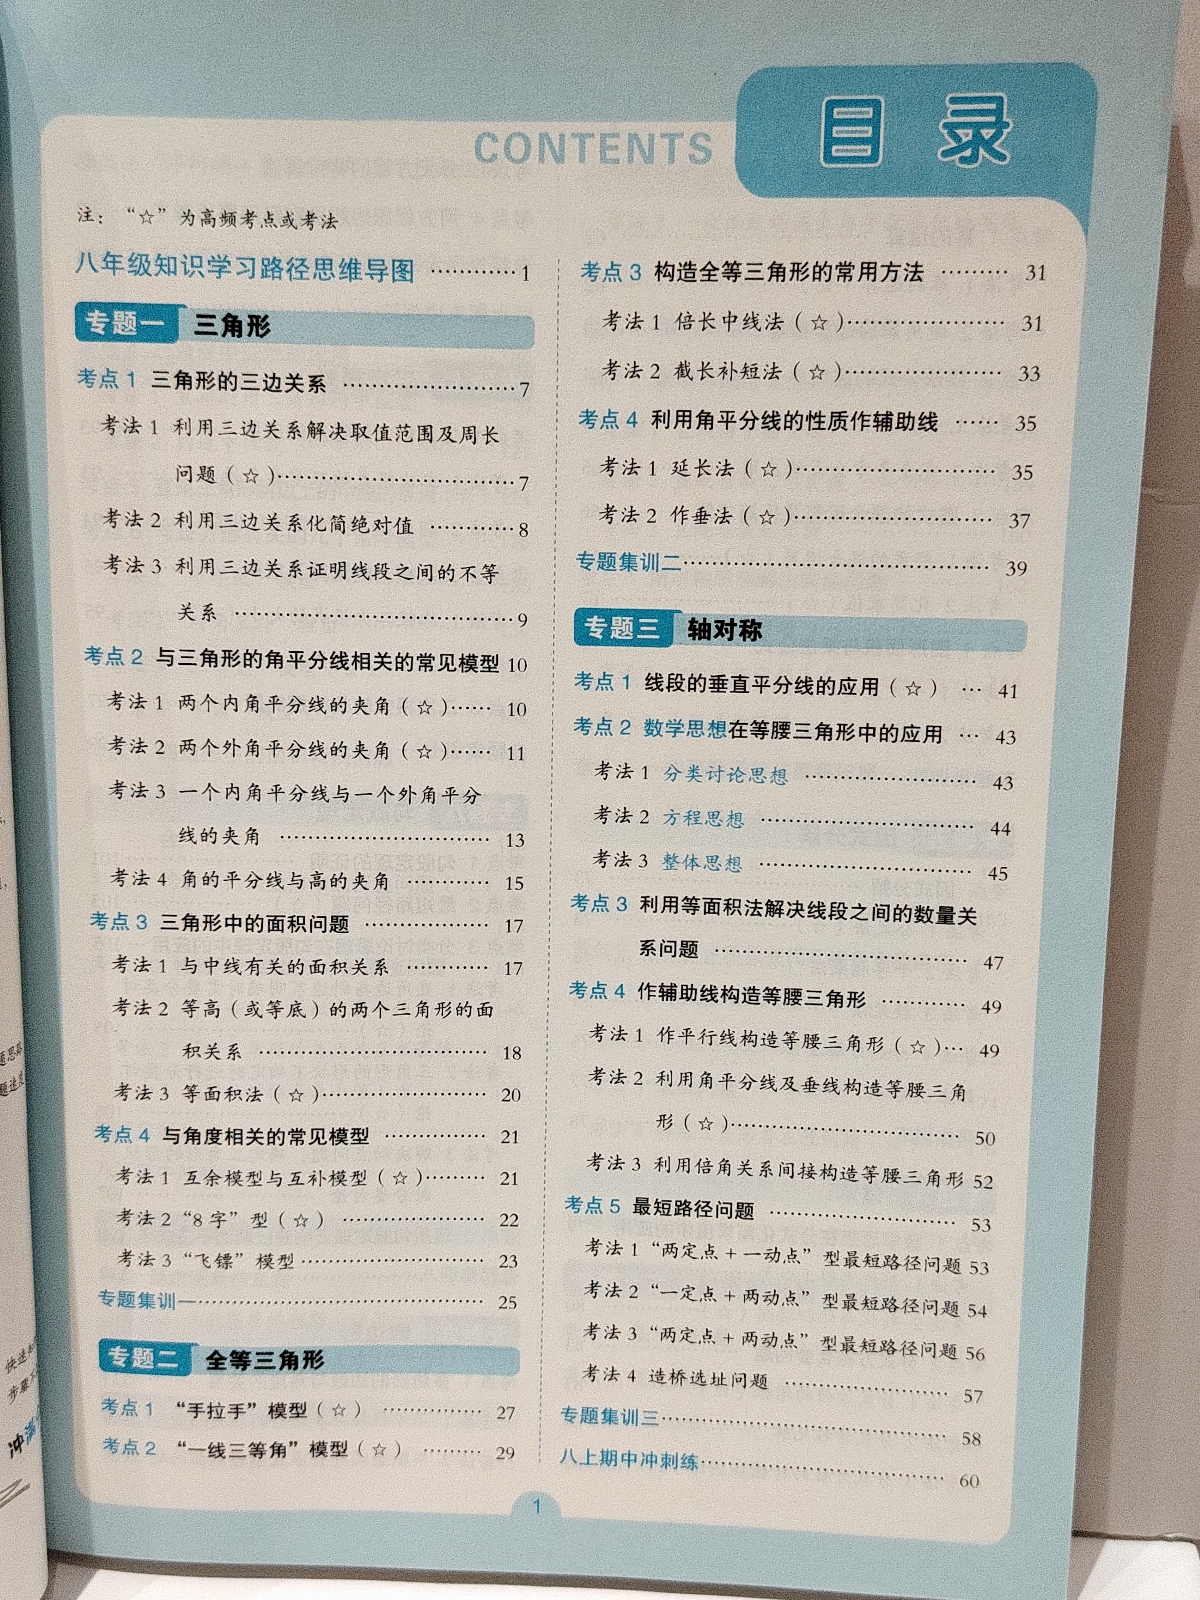 目录
CONTENTS
注：“☆”为高频考点或考法
八年级知识学习路径思维导图 …………1
专题一 三角形
考点1 三角形的三边关系 ……………………7
考法1 利用三边关系解决取值范围及周长
问题(☆)……………………………7
考法2 利用三边关系化简绝对值 …………8
考法3 利用三边关系证明线段之间的不等
关系 …………………………………9
考点2 与三角形的角平分线相关的常见模型 10
考法1 两个内角平分线的夹角(☆)…… 10
考法2 两个外角平分线的夹角(☆)…… 11
考法3 一个内角平分线与一个外角平分
线的夹角 ………………………… 13
考法4 角的平分线与高的夹角 ………… 15
考点3 三角形中的面积问题 ……………… 17
考法1 与中线有关的面积关系 ………… 17
考法2 等高(或等底)的两个三角形的面
积关系 …………………………… 18
考法3 等面积法(☆)…………………… 20
考点4 与角度相关的常见模型 …………… 21
考法1 互余模型与互补模型(☆)……… 21
考法2 “8字”型(☆) ………………… 22
考法3 “飞镖”模型……………………… 23
专题集训一…………………………………… 25
专题二 全等三角形
考点1 “手拉手”模型(☆) …………… 27
考点2 “一线三等角”模型(☆) ……… 29
考点3 构造全等三角形的常用方法 ……… 31
考法1 倍长中线法(☆)………………… 31
考法2 截长补短法(☆)………………… 33
考点4 利用角平分线的性质作辅助线 …… 35
考法1 延长法(☆)……………………… 35
考法2 作垂法(☆)……………………… 37
专题集训二…………………………………… 39
专题三 轴对称
考点1 线段的垂直平分线的应用(☆) … 41
考点2 数学思想在等腰三角形中的应用 … 43
考法1 分类讨论思想 …………………… 43
考法2 方程思想 ………………………… 44
考法3 整体思想 ………………………… 45
考点3 利用等面积法解决线段之间的数量关
系问题 ……………………………… 47
考点4 作辅助线构造等腰三角形 ………… 49
考法1 作平行线构造等腰三角形(☆)… 49
考法2 利用角平分线及垂线构造等腰三角
形(☆)…………………………… 50
考法3 利用倍角关系间接构造等腰三角形 52
考点5 最短路径问题 ……………………… 53
考法1 “两定点+一动点”型最短路径问题 53
考法2 “一定点+两动点”型最短路径问题 54
考法3 “两定点+两动点”型最短路径问题 56
考法4 造桥选址问题 …………………… 57
专题集训三…………………………………… 58
八上期中冲刺练……………………………… 60
1